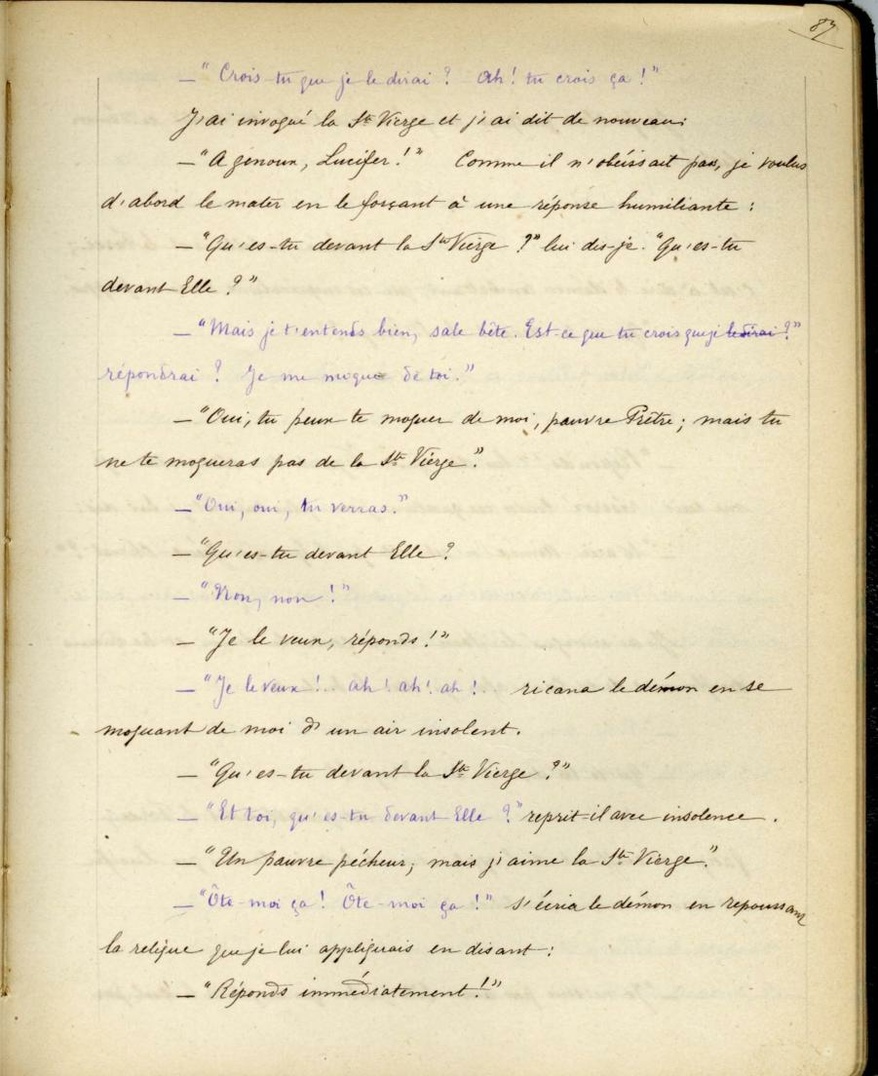 87
— "Crois-tu que je le dirai ? Ah ! tu crois ça !"
J'ai invoqué la Ste Vierge et j'ai dit de nouveau :
— "A genoux, Lucifer !" Comme il n'obéissait pas, je voulus
d'abord le mater en le forçant à une réponse humiliante :
— "Qu'es-tu devant la Ste Vierge ?" lui dis-je. "Qu'es-tu
devant Elle ?"
— "Mais je t'entends bien, sale bête. Est-ce que tu crois que je le dirai ?"
répondrai ? Je me moque de toi."
— "Oui, tu peux te moquer de moi, pauvre Prêtre ; mais tu
ne te moqueras pas de la Ste Vierge."
— "Oui, oui, tu verras."
— "Qu'es-tu devant Elle ?
— "Non, non !"
— "Je le veux, réponds !"
— "Je le veux !.. ah ! ah ! ah ! ricana le démon en se
moquant de moi d'un air insolent.
— "Qu'es-tu devant la Ste Vierge ?"
— "Et toi, qu'es-tu devant Elle ?" reprit-il avec insolence.
— "Un pauvre pécheur ; mais j'aime la Ste Vierge".
— "Ôte-moi ça ! Ôte-moi ça !" s'écria le démon en repoussant
la relique que je lui appliquais en disant :
— "Réponds immédiatement !"